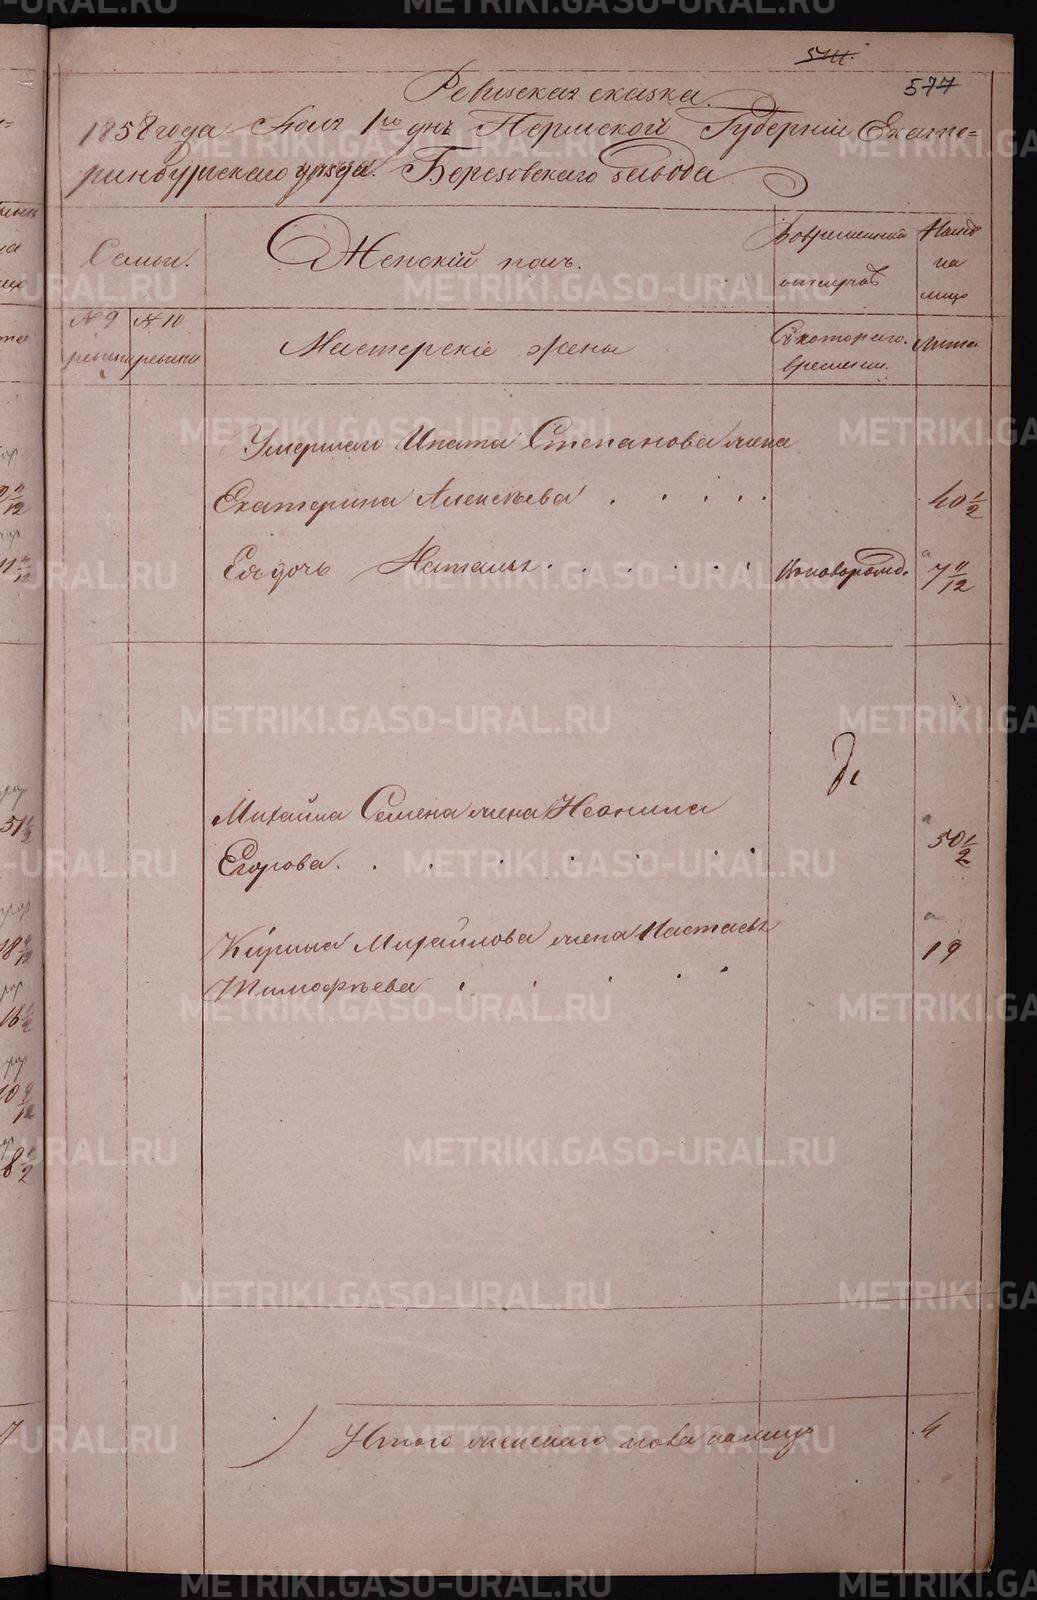 577
Ревизская сказка.
1858 года Iюля 1го дня Пермской Губернiи Екате=
ринбургскаго уѣзда. Березовскаго завода
Семьи.
Женскiй полъ.
Во временной отлучкѣ
Нынѣ на лицо
№ 9 ревизiи
№ 10 ревизiи
Мастерскiе жены
Съ котораго времени.
Лѣта
Умершаго Ипата Степанова жена
Екатерина Алексѣева . . . . . 40 1/2
Ея дочь Наталья . . . . . . Новорожд. 7 11/12
Михайла Семена жена Неонила
Егорова. . . . . . . . 50 1/2
Кирила Михайлова жена Настасья 19
Тимофѣева . . . . .
Итого женскаго пола на лицо 4
METRIKI.GASO-URAL.RU